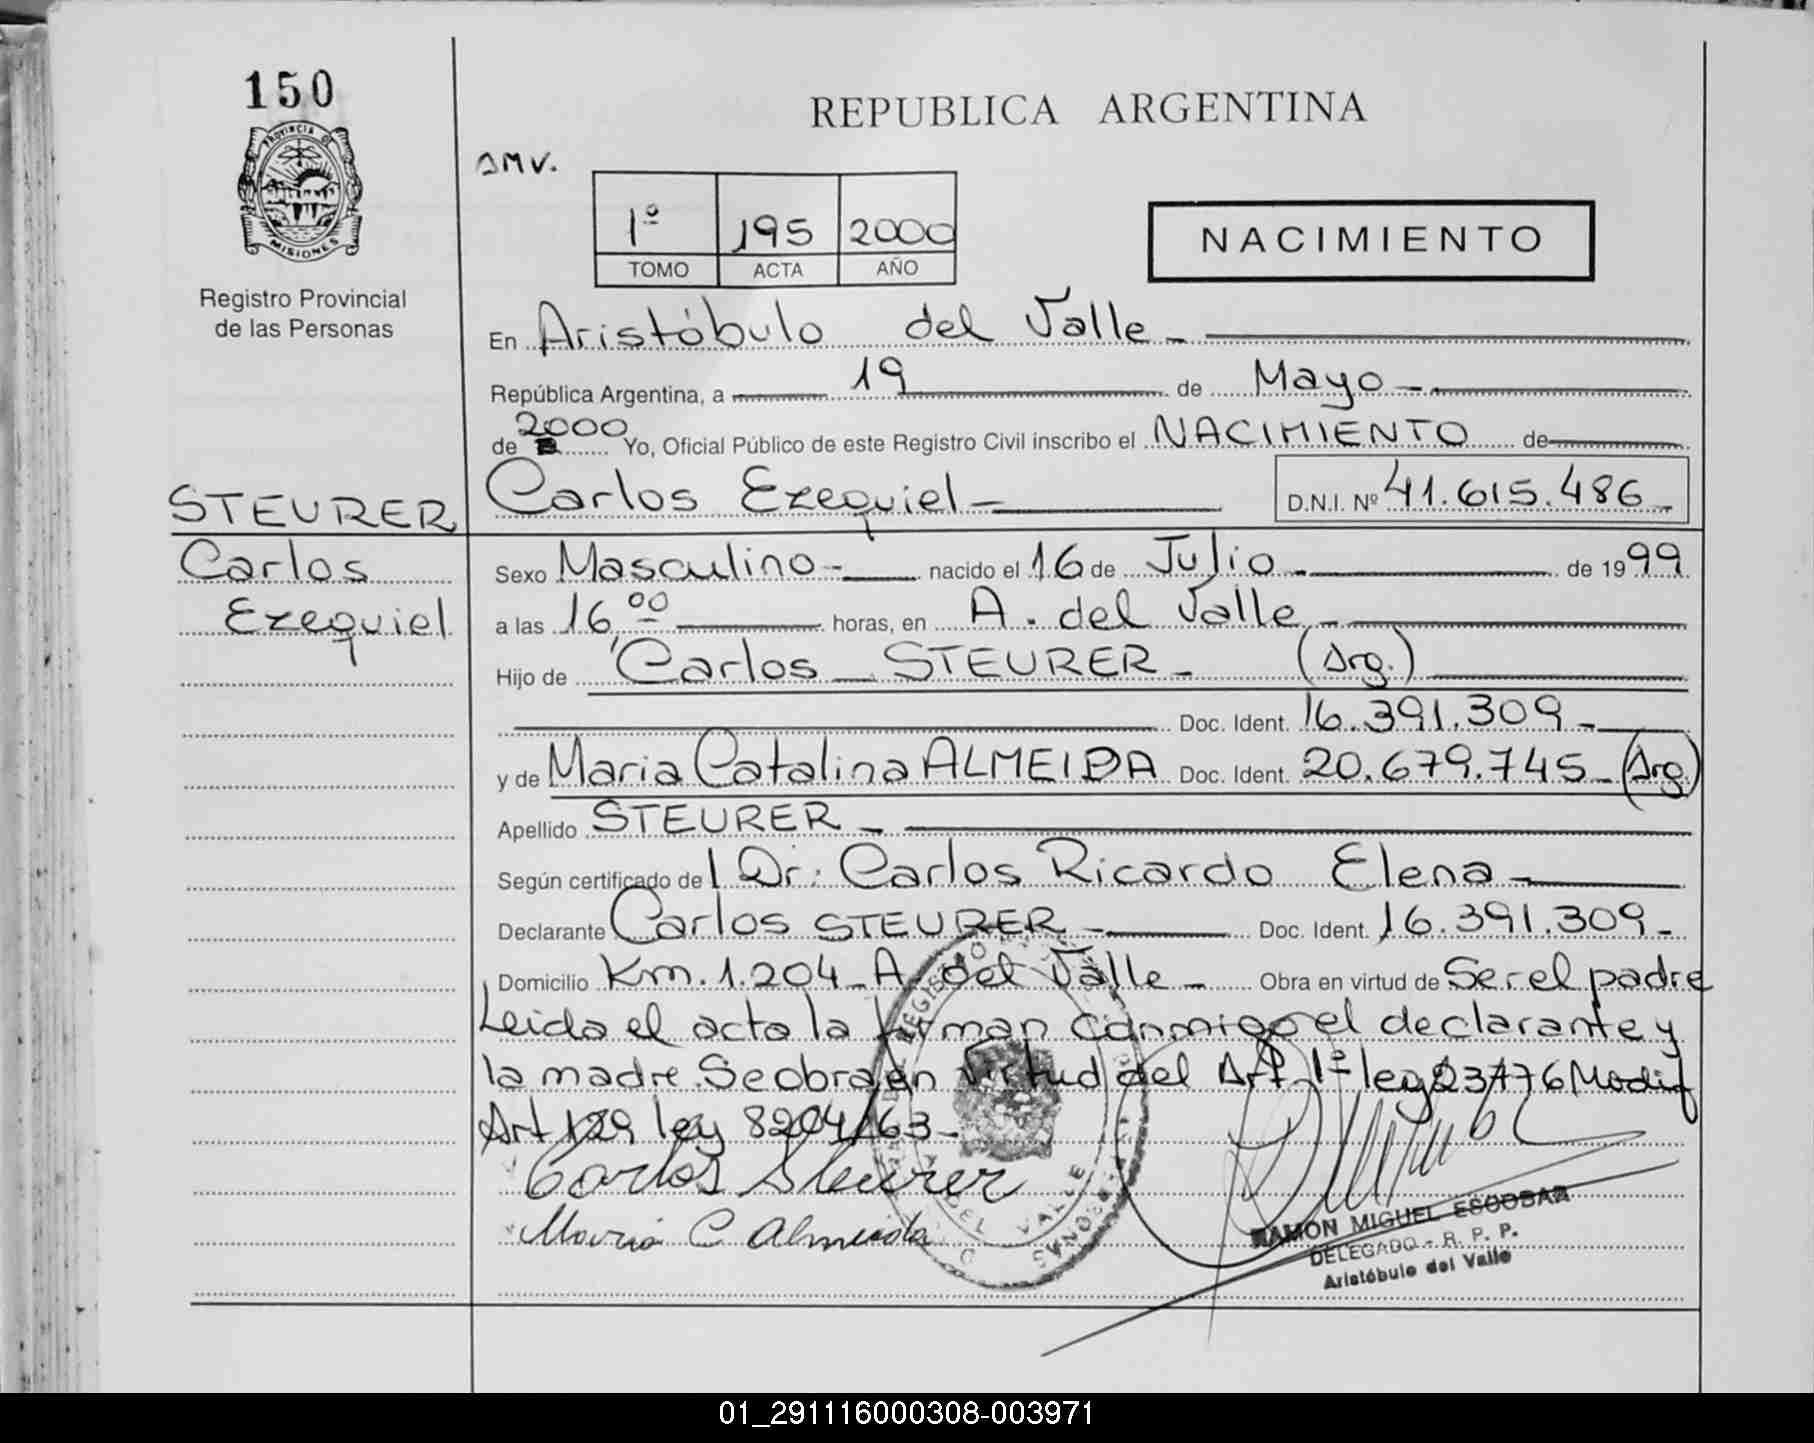 150
PROVINCIA DE
MISIONES
Registro Provincial
de las Personas
STEURER
Carlos
Ezequiel
REPUBLICA ARGENTINA
AMV.
1º 195 2000
TOMO ACTA AÑO
NACIMIENTO
En Aristóbulo del Valle -
República Argentina, a 19 de Mayo -
de 2000 Yo, Oficial Público de este Registro Civil inscribo el NACIMIENTO de
Carlos Ezequiel - D.N.I. Nº 41.615.486 -
Sexo Masculino - nacido el 16 de Julio - de 1999
a las 16 00 horas, en A. del Valle -
Hijo de Carlos STEURER - (Arg.)
Doc. Ident. 16.391.309 -
y de Maria Catalina ALMEIDA Doc. Ident. 20.679.745 - (Arg.)
Apellido STEURER -
Según certificado del Dr: Carlos Ricardo Elena -
Declarante Carlos STEURER - Doc. Ident. 16.391.309 -
Domicilio Km. 1.204 - A. del Valle - Obra en virtud de Ser el padre
Leida el acta la firman conmigo el declarante y
la madre. Se obra en Virtud del Art 1º ley 23776 Modif
Art 129 ley 8204/63 -
Carlos Steurer
Maria C Almeida
RAMON MIGUEL ESCOBAR
DELEGADO - R. P. P.
Aristóbulo del Valle
01_291116000308-003971